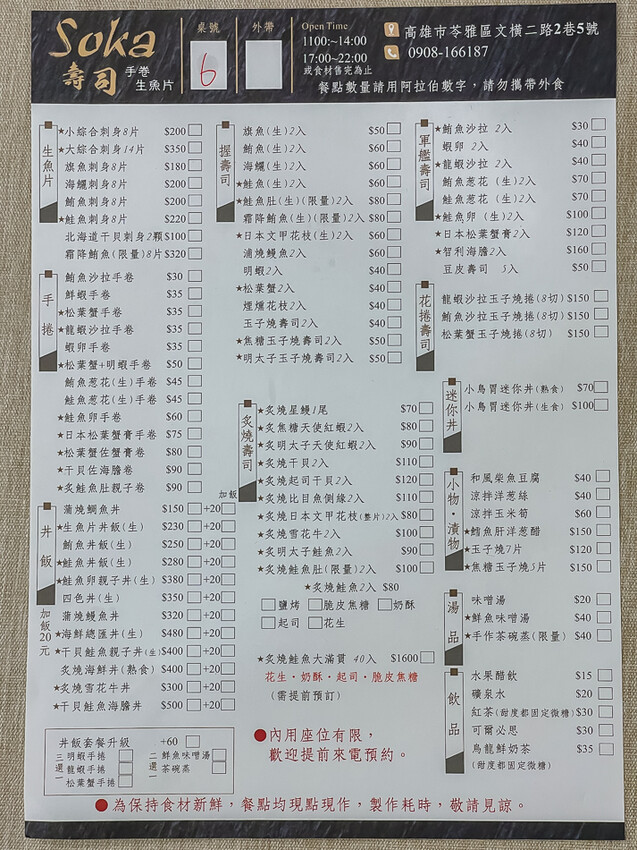 Soka
壽司 手卷 生魚片
桌號
6
外帶
Open Time
1100:~14:00
17:00~22:00
或食材售完為止
高雄市苓雅區文橫二路2巷5號
0908-166187
餐點數量請用阿拉伯數字，請勿攜帶外食
生魚片
★小綜合刺身8片 $200
★大綜合刺身14片 $350
旗魚刺身8片 $180
海鱺刺身8片 $200
鮪魚刺身8片 $200
★鮭魚刺身8片 $220
北海道干貝刺身2顆$100
霜降鮪魚(限量)8片$320
手捲
鮪魚沙拉手卷 $30
鮮蝦手卷 $35
★松葉蟹手卷 $35
★龍蝦沙拉手卷 $35
蝦卵手卷 $35
★松葉蟹+明蝦手卷 $50
鮪魚葱花(生)手卷 $45
鮭魚葱花(生)手卷 $45
★鮭魚卵手卷 $60
★日本松葉蟹膏手卷 $75
★松葉蟹佐蟹膏卷 $80
★干貝佐海膽卷 $90
★炙鮭魚肚親子卷 $90
丼飯
加飯20元
加飯
蒲燒鯛魚丼 $150 +20
★生魚片丼飯(生) $230 +20
鮪魚丼飯(生) $250 +20
★鮭魚丼飯(生) $280 +20
★鮭魚卵親子丼(生) $380 +20
四色丼(生) $350 +20
蒲燒鰻魚丼 $320 +20
★海鮮總匯丼(生) $480 +20
★干貝鮭魚親子丼(生) $400 +20
炙燒海鮮丼(熟食) $400 +20
★炙燒雪花牛丼 $300 +20
★干貝鮭魚海膽丼 $500 +20
丼飯套餐升級 +60
三選一
明蝦手捲
龍蝦手捲
松葉蟹手捲
二選一
鮮魚味噌湯
茶碗蒸
握壽司
旗魚(生)2入 $50
鮪魚(生)2入 $60
海鱺(生)2入 $60
★鮭魚(生)2入 $60
★鮭魚肚(生)(限量)2入 $80
霜降鮪魚(生)(限量)2入 $80
★日本文甲花枝(生)2入 $60
蒲燒鰻魚2入 $60
明蝦2入 $40
★松葉蟹2入 $40
煙燻花枝2入 $40
玉子燒壽司2入 $40
★焦糖玉子燒壽司2入 $50
★明太子玉子燒壽司2入 $50
炙燒壽司
★炙燒星鰻1尾 $70
★炙焦糖天使紅蝦2入 $80
★炙明太子天使紅蝦2入 $90
★炙燒干貝2入 $110
★炙燒起司干貝2入 $120
★炙燒比目魚側緣2入 $110
★炙燒日本文甲花枝(整片)2入 $80
★炙燒雪花牛2入 $100
★炙明太子鮭魚2入 $90
★炙燒鮭魚肚(限量)2入 $100
★炙燒鮭魚2入 $80
鹽烤 脆皮焦糖 奶酥
起司 花生
★炙燒鮭魚大滿貫 40入 $1600
花生・奶酥・起司・脆皮焦糖
(需提前預訂)
●內用座位有限，
歡迎提前來電預約。
軍艦壽司
★鮪魚沙拉 2入 $30
蝦卵 2入 $40
★龍蝦沙拉 2入 $40
鮪魚葱花 (生)2入 $70
鮭魚葱花 (生)2入 $70
★鮭魚卵 (生)2入 $100
★日本松葉蟹膏2入 $120
★智利海膽2入 $160
豆皮壽司 5入 $50
花捲壽司
龍蝦沙拉玉子燒捲(8切) $150
鮪魚沙拉玉子燒捲(8切) $150
松葉蟹玉子燒捲(8切) $150
迷你丼
小鳥胃迷你丼(熟食) $70
小鳥胃迷你丼(生食) $100
小物・漬物
和風柴魚豆腐 $40
涼拌洋葱絲 $40
涼拌玉米筍 $60
★鱈魚肝洋葱醋 $150
★玉子燒7片 $120
★焦糖玉子燒5片 $150
湯品
味噌湯 $20
★鮮魚味噌湯 $40
★手作茶碗蒸(限量) $40
飲品
水果醋飲 $15
礦泉水 $20
紅茶(甜度都固定微糖) $30
可爾必思 $30
烏龍鮮奶茶 $35
(甜度都固定微糖)
●為保持食材新鮮，餐點均現點現作，製作耗時，敬請見諒。